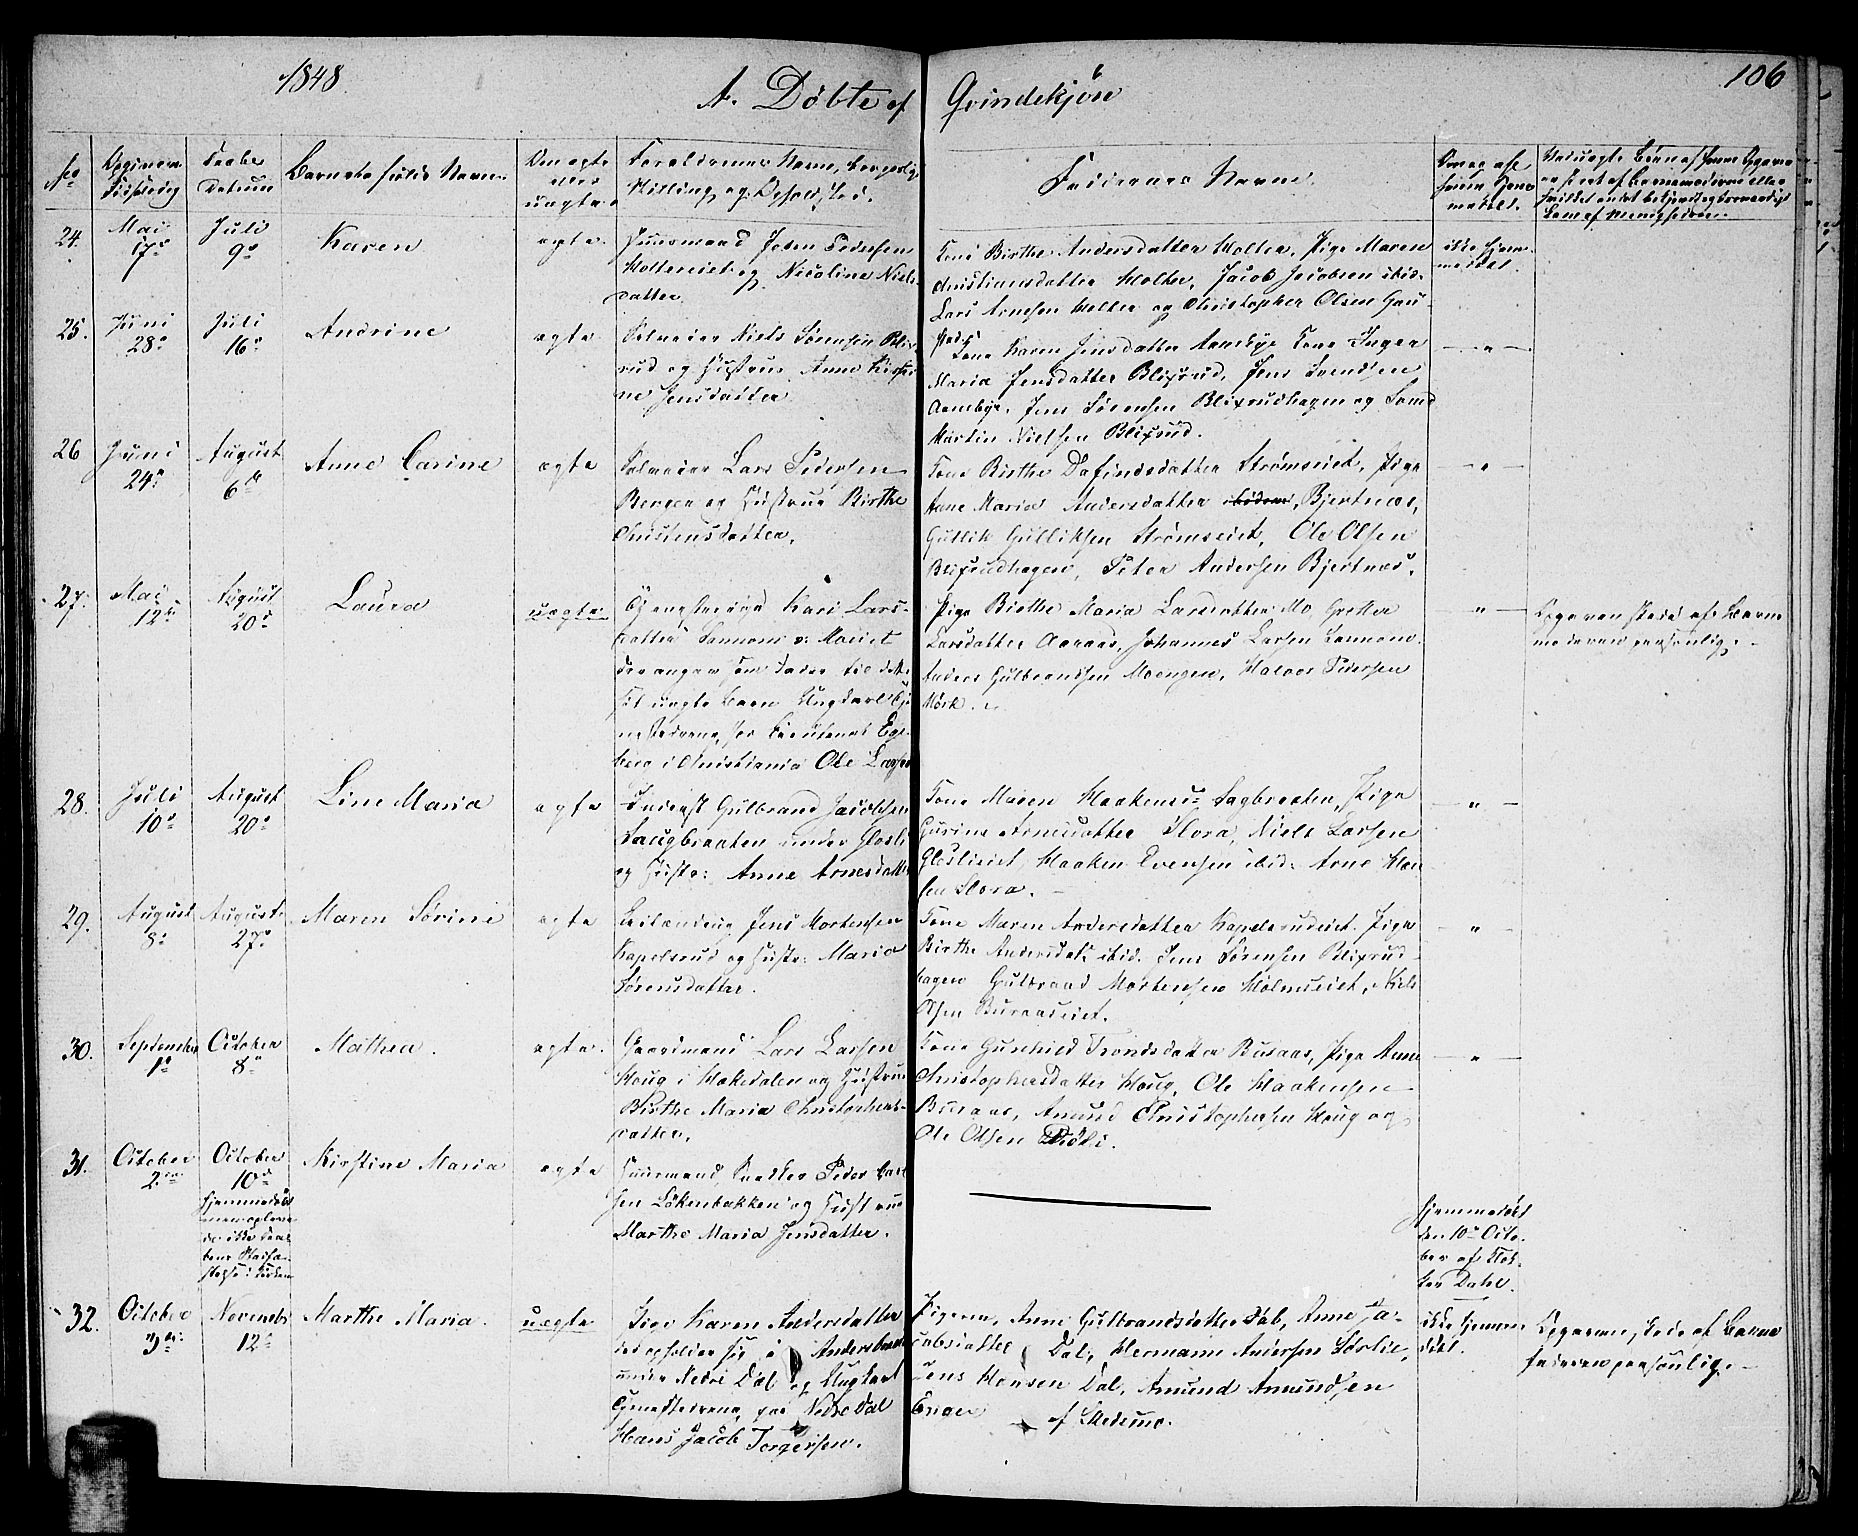 1848.
A. Døbte af Qvindekjøn
106
No
Daabs Datum
Barnets fulde Navn
Om ægte eller uægte
Foreldrenes Navn, borgerlig
Stilling og Opholdssted.
Faddernes Navne.
24.
Mai 17de
Juli 9de
Karen
ægte.
Huusmand Johan Pedersen
Holtereiet og Nicoline Niels-
datter
Kone Birthe Andersdatter Holter, Pige Maren
Christiansdatter Holter, Jacob Jacobsen ibid.
Lars Arnesen Holter og Christopher Olsen Gau-
stad
ikke hjemmedøbt.
25.
Juni 28de
Juli 16de
Andrine
ægte
Selveier Niels Sørensen Blix-
rud og Hustrue Anne Kirsti-
ne Jensdatter
Kone Karen Jensdatter Aanebye Kone Inger
Maria Jensdatter Blixrud, Jens Svendsen
Aanebye, Jens Sørensen Blixrudhagen og
Martin Nielsen Blixrud.
— " —
26
Juni 24de
August 6te
Anne Carine
ægte
Selveier Lars Pedersen
Berger og Hustrue Birthe
Christensdatter.
Kone Birthe Dafindsdatter Strømseiet, Pige
Anne Maria Andersdatter ibidem, Bjertnæs,
Gullik Gulliksen Strømseiet, Ole Olsen
Blixrudhagen, Peter Andersen Bjertnæs.
— " —
27.
Mai 12te
August 20de
Laura
uægte
Pige Kari Lars-
datter
der angav som Fader til dette
sit uægte Barn Ungkarl Tje-
nestedreng hos Lieutenant Ege-
berg i Christiania Ole Larsen
Pige Birthe Maria Larsdatter Mo, Grethe
Larsdatter Aaraas, Johannes Larsen
Anders Gulbrandsen Moengen, Halvor Pedersen
Mørk.
" —
Opgaven skede af Barne-
moderen personlig.
28.
Juli 10de
August 20de
Line Maria
ægte
Inderst Gulbrand Jacobsen
Saugbraaten under Glosli
og Hustr: Anne Arnesdatter
Kone Maren Haakensd: Sagbraaten, Pige
Gurine Arnesdatter Slora, Niels Larsen
Gloslieiet, Haaken Evensen ibid. Arne Han-
sen Slora.
— " —
29.
August 8de
August 27de
Maren Sørine
ægte
Jens Mortensen
Kapelsrud og Hustr: Maria
Sørensdatter.
Kone Maren Andersdatter Kapelsrudeiet. Pige
Birthe Andersdat: ibid. Jens Sørensen Blixrud-
hagen Gulbrand Mortensen Holmseiet, Niels
Olsen Buraaseiet.
— " —
30.
September 1ste
October 8de
Mathea.
ægte.
Gaardmand Lars Larsen
Houg i Hakedalen og Hustrue
Birthe Maria Christophers-
datter.
Kone Gunhild Trondsdatter Buraas, Pige Anne
Christophersdatter Houg, Ole Haakensen
Buraas, Amund Christophersen Houg og
Ole Olsen
— " —
31.
October 2den
October 10de
hjemmedøbt
men oplevede
ikke Daa-
bens Stadfæ-
stelse i Kirken
Kirstine Maria
ægte
Huusmand, Snedker Peder Carl-
sen Løkenbakken og Hustrue
Marthe Maria Jensdatter.
hjemmedøbt
den 10de Octo-
ber af Klok-
ker Dahl.
32.
October 3die
November 12te
Marthe Maria.
uægte
Pige Karen Andersdatter
der opholder sig i Andersbraaten
under Nedre Dal og Ungkarl
Tjenestedreng paa Nedre Dal
Hans Jacob Torgersen.
Pigerne, Anne Gulbrandsdatter Dal, Anne Ja-
cobsdatter Dal, Hermann Andersen Sørlie,
Jens Hansen Dal, Amund Amundsen
Enger af Skedsmo.
ikke hjemmedøbt.
Opgaven skede af Barne-
faderen personlig.